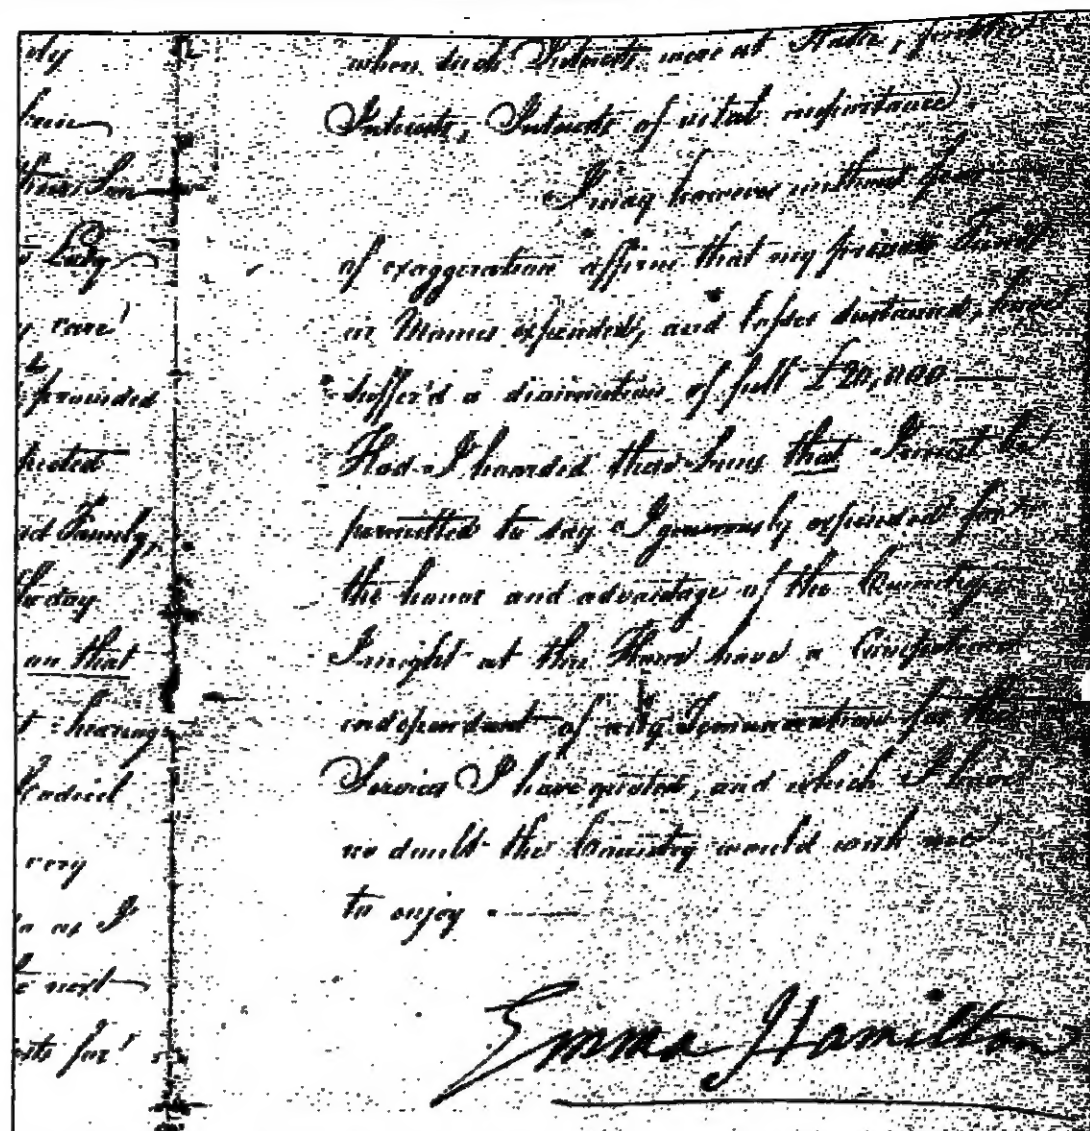 dy
provided
ed Family,
day
on that
hearing
very
as I
next
for
when such Interests were at Stake, public
Interests, Interests of vital importance.
I may however without fear
of exaggeration affirm that my private Funds
in Monies expended, and losses sustained, have
suffer'd a diminution of full £20,000 —
Had I hoarded those Sums that I must be
permitted to say I generously expended for
the honor and advantage of the Country,
I might at this Hour have a Competence
independant of any Remuneration for the
Services I have quoted, and which I have
no doubt the Country would wish me
to enjoy .
Emma Hamilton